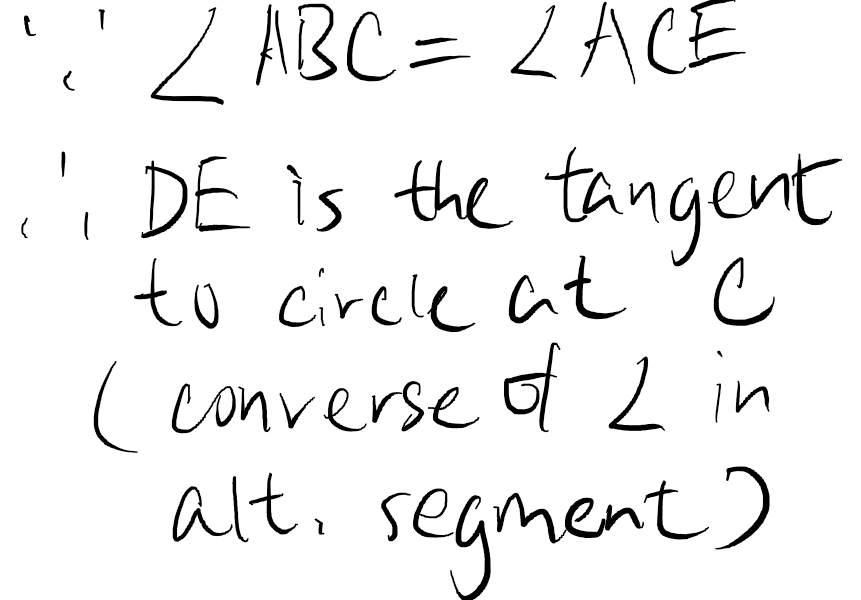 ∵ ∠ABC = ∠ACE
∴ DE is the tangent
to circle at C
(converse of ∠ in
alt. segment)